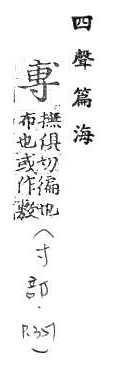 四聲篇海
尃
撫俱切徧也
布也或作敷
（寸部．P.351）